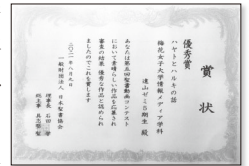 賞状
優秀賞
ハヤトとハルキの話
梅花女子大学情報メディア学科
遠山ゼミ5期生 殿
あなたは第五回聖書動画コンテスト
において素晴らしい作品を応募され
審査の結果 優秀な作品と認められ
ましたのでこれを賞します
二〇二一年八月九日
一般財団法人 日本聖書協会
理事長 石田 学
総主事 具志堅 聖